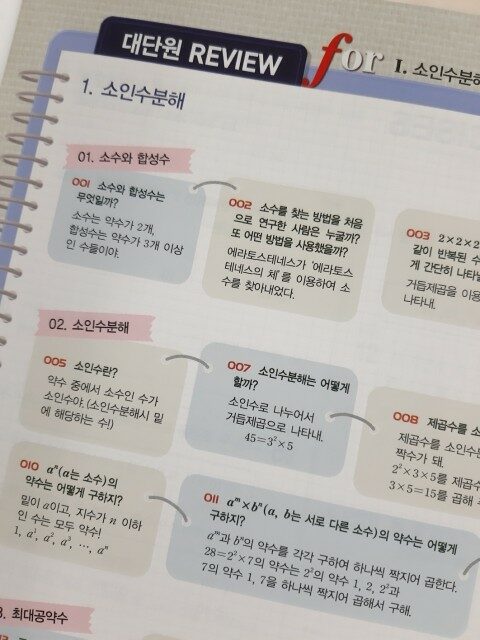 대단원 REVIEW for I. 소인수분해
1. 소인수분해
01. 소수와 합성수
001 소수와 합성수는
무엇일까?
소수는 약수가 2개,
합성수는 약수가 3개 이상
인 수들이야.
002 소수를 찾는 방법을 처음
으로 연구한 사람은 누굴까?
또 어떤 방법을 사용했을까?
에라토스테네스가 '에라토스
테네스의 체'를 이용하여 소
수를 찾아내었다.
003 2×2×2
같이 반복된 수
게 간단히 나타낼
거듭제곱을 이용
나타내.
02. 소인수분해
005 소인수란?
약수 중에서 소수인 수가
소인수야. (소인수분해시 밑
에 해당하는 수!)
007 소인수분해는 어떻게
할까?
소인수로 나누어서
거듭제곱으로 나타내.
45=3²×5
008 제곱수를 소
제곱수를 소인수분
짝수가 돼.
2²×3×5를 제곱수
3×5=15를 곱해
010 aⁿ(a는 소수)의
약수는 어떻게 구하지?
밑이 a이고, 지수가 n 이하
인 수는 모두 약수!
1, a¹, a², a³, …, aⁿ
011 aᵐ×bⁿ(a, b는 서로 다른 소수)의 약수는 어떻게
구하지?
aᵐ과 bⁿ의 약수를 각각 구하여 하나씩 짝지어 곱한다.
28=2²×7의 약수는 2²의 약수 1, 2, 2²과
7의 약수 1, 7을 하나씩 짝지어 곱해서 구해.
3. 최대공약수